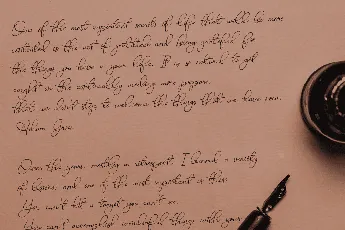 One of the most important secrets of life that will be more
controlled is the art of gratitude and being grateful for
the things you have in your life. It is so natural to get
caught in the continually making more progress,
that we don't stop to welcome the things that we have now.
William
Over the years, mostly in retrospect, I learned a variety
of lessons, and one of the most important is this:
You won't hit a target you can't see.
You can't accomplish wonderful things with your